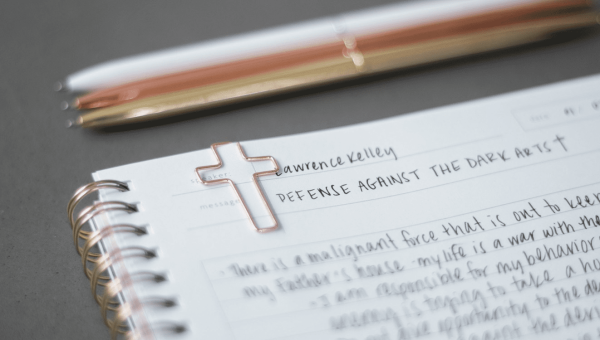 Lawrence Kelley
DEFENSE AGAINST THE DARK ARTS†
message
- There is a malignant force that is out to keep
my Father's house. my life is a war with the
- I am responsible for my behavior
enemy is trying to take a
opportunity to the